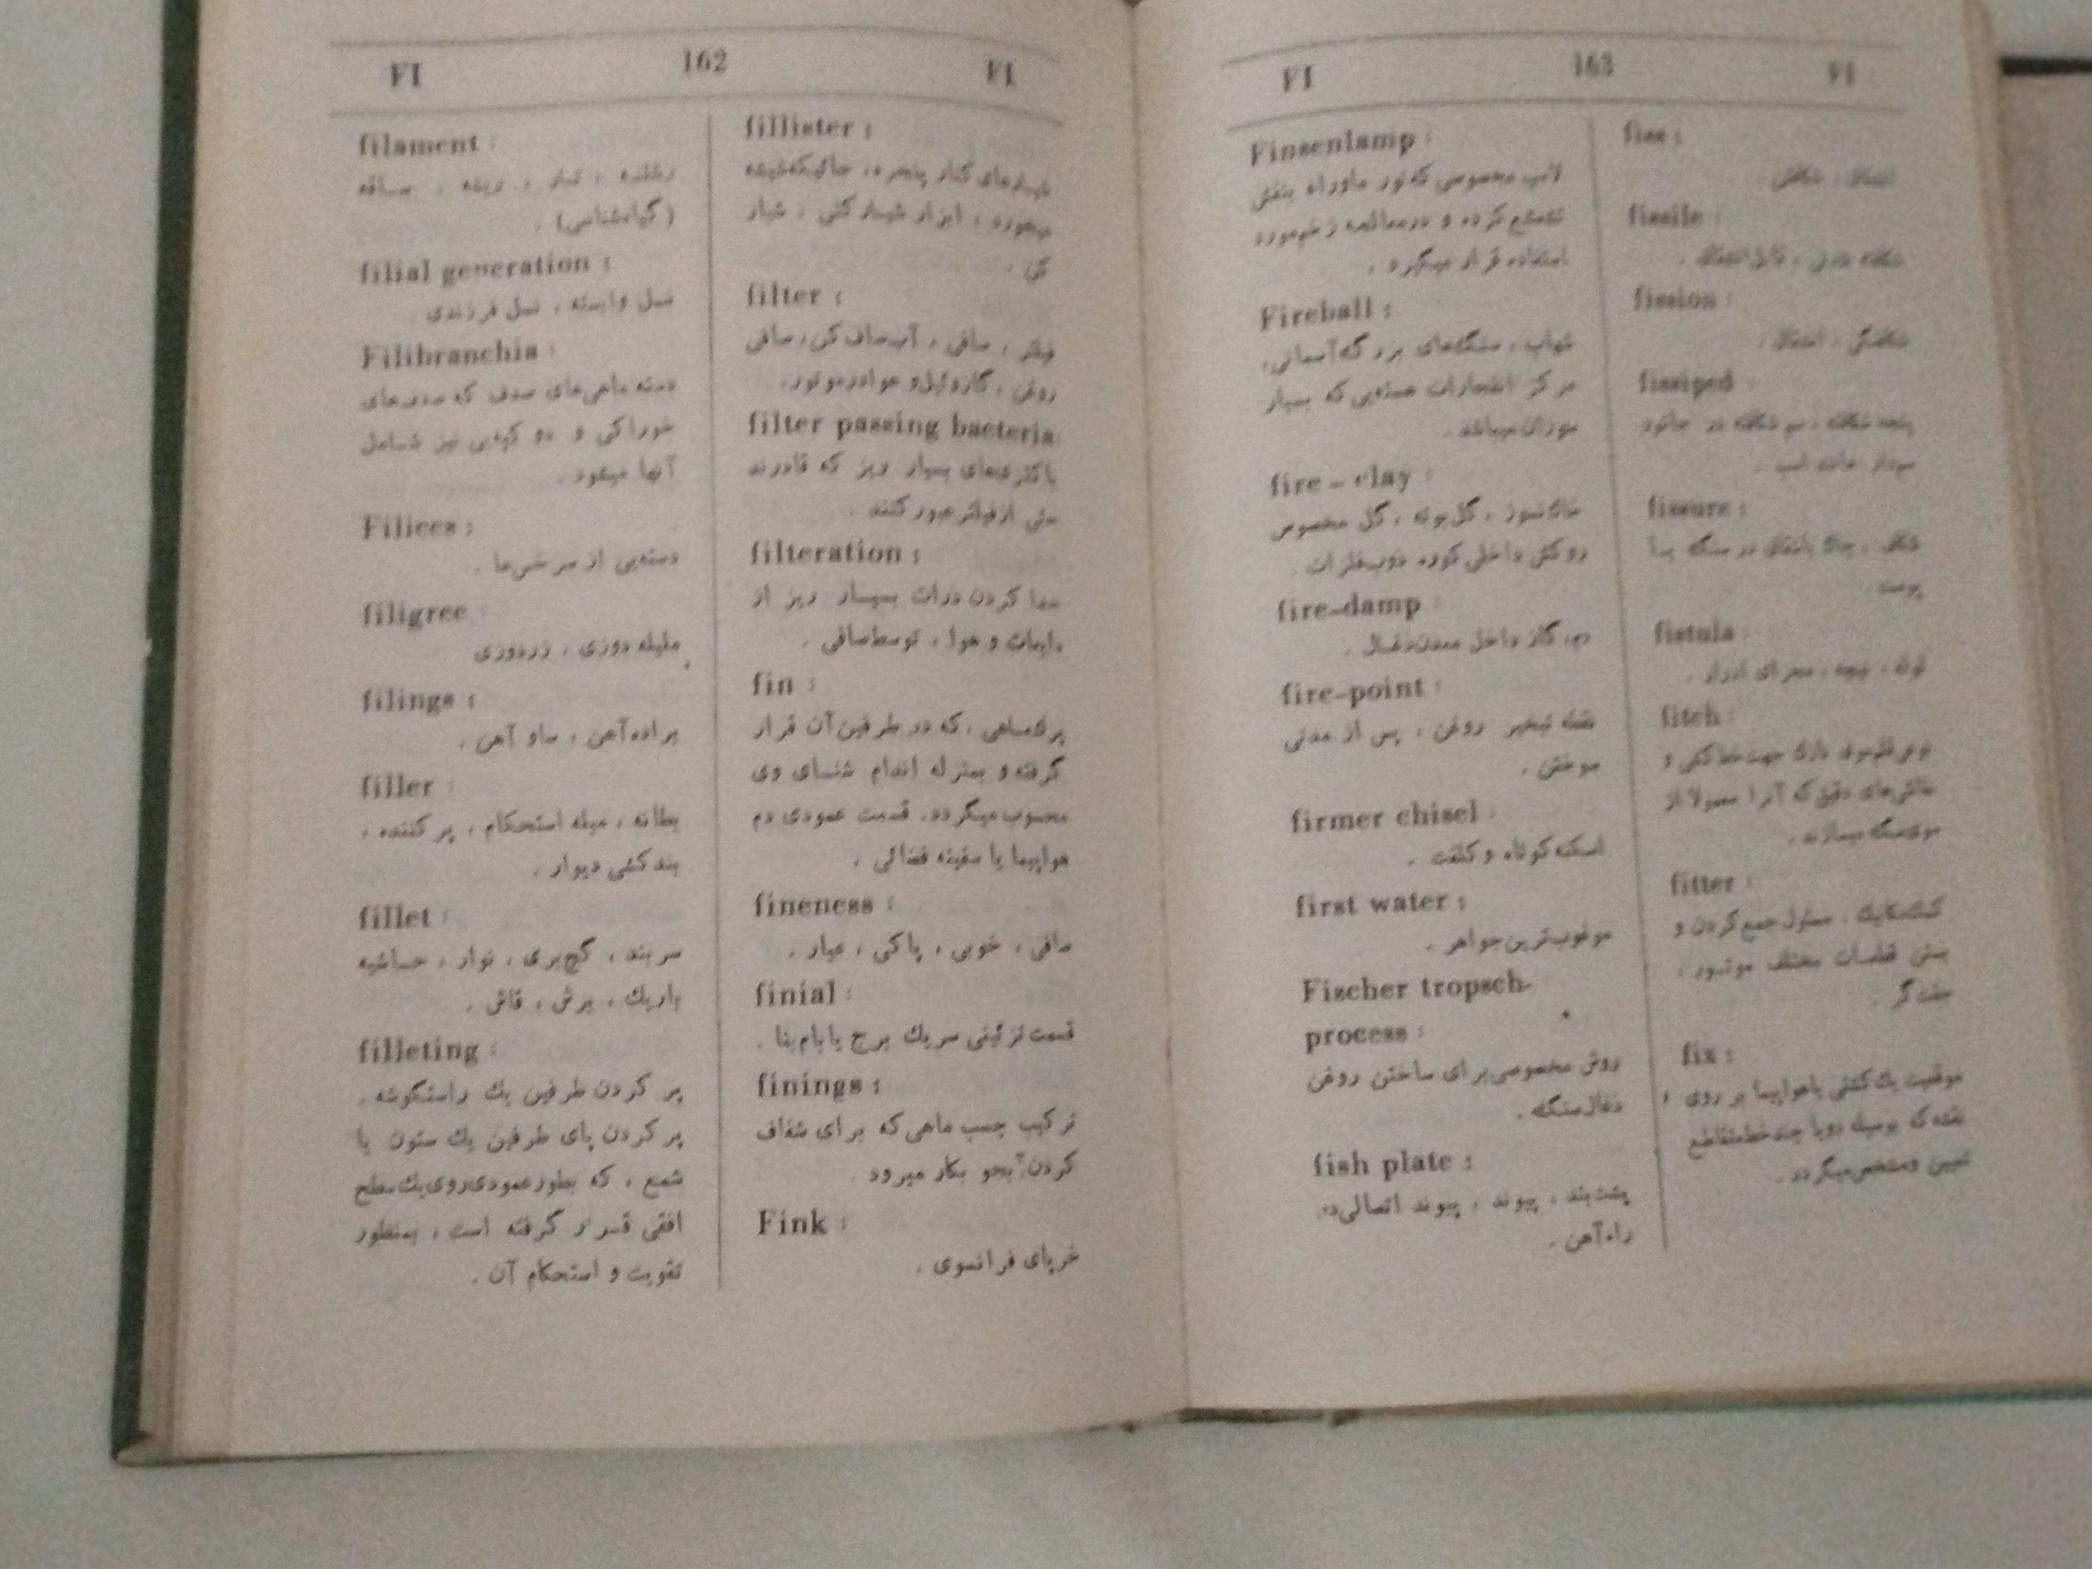 FI 162 FI
filament :
رشته ، تار ، ریشه ، ساقه
(گیاه‌شناسی) .
filial generation :
نسل وابسته ، نسل فرزندی .
Filibranchia :
دسته ماهی‌های صدف که صدف‌های
خوراکی و دو کپه‌یی نیز شامل
آنها میشود .
Filices :
دسته‌یی از سرخس‌ها .
filigree :
ملیله دوزی ، زردوزی
filings :
براده آهن ، ساو آهن .
filler :
بطانه ، میله استحکام ، پر کننده ،
بند کشی دیوار .
fillet :
سربند ، گچ‌بری ، نوار ، حاشیه
باریك ، برش ، قاش .
filleting :
پر کردن طرفین یك راستگوشه .
پر کردن پای طرفین یك ستون یا
شمع ، که بطور عمودی روی یك سطح
افقی قرار گرفته است ، بمنظور
تقویت و استحکام آن .
fillister :
شیارهای کنار پنجره ، جائیکه شیشه
میخورد ، ابزار شیار کنی ، شیار
کن .
filter :
فیلتر ، صافی ، آب صاف کن ، صافی
روغن ، گازوئیل و هوا در موتور .
filter passing bacteria
باکتری‌های بسیار ریز که قادرند
حتی از فیلتر عبور کنند .
filteration :
جدا کردن ذرات بسیار ریز از
مایعات و هوا ، توسط صافی .
fin :
پرك ماهی ، که در طرفین آن قرار
گرفته و بمنزله اندام شنای وی
محسوب میگردد. قسمت عمودی دم
هواپیما یا سفینه فضائی .
fineness :
صافی ، خوبی ، پاکی ، عیار .
finial :
قسمت تزئینی سر یك برج یا بام بنا .
finings :
ترکیب چسب ماهی که برای شفاف
کردن آبجو بکار میرود
Fink :
خرپای فرانسوی .
FI 163 FI
Finsenlamp :
لامپ مخصوصی که نور ماوراء بنفش
تشعشع کرده و در معالجه زخم مورد
استفاده قرار میگیرد .
Fireball :
شهاب ، سنگ‌های بزرگ آسمانی ،
مرکز انفجارات هسته‌یی که بسیار
سوزان میباشد .
fire - clay :
خاك نسوز ، گل بوته ، گل مخصوص
روکش داخلی کوره ذوب فلزات .
fire-damp :
دم، گاز داخل معدن ذغال .
fire-point :
نقطه تبخیر روغن ، پس از مدتی
سوختن .
firmer chisel :
اسکنه کوتاه و کلفت .
first water :
مرغوب‌ترین جواهر .
Fischer tropsch-
process :
روش مخصوصی برای ساختن روغن
ذغال سنگ .
fish plate :
پشت بند ، پیوند ، پیوند اتصالی در
راه آهن .
fiss :
fissile :
fission :
شکافتگی ، انشقاق .
fissiped :
fissure :
پوست .
fistula :
لوله ، نیچه ، مجرای ادرار .
fitch :
fitter :
کمك مکانیك ، مسئول جمع کردن و
بستن قطعات مختلف موتور ،
fix :
موقعیت یك کشتی یا هواپیما بر روی
نقشه که بوسیله دو یا چند خط متقاطع
تعیین و مشخص میگردد .